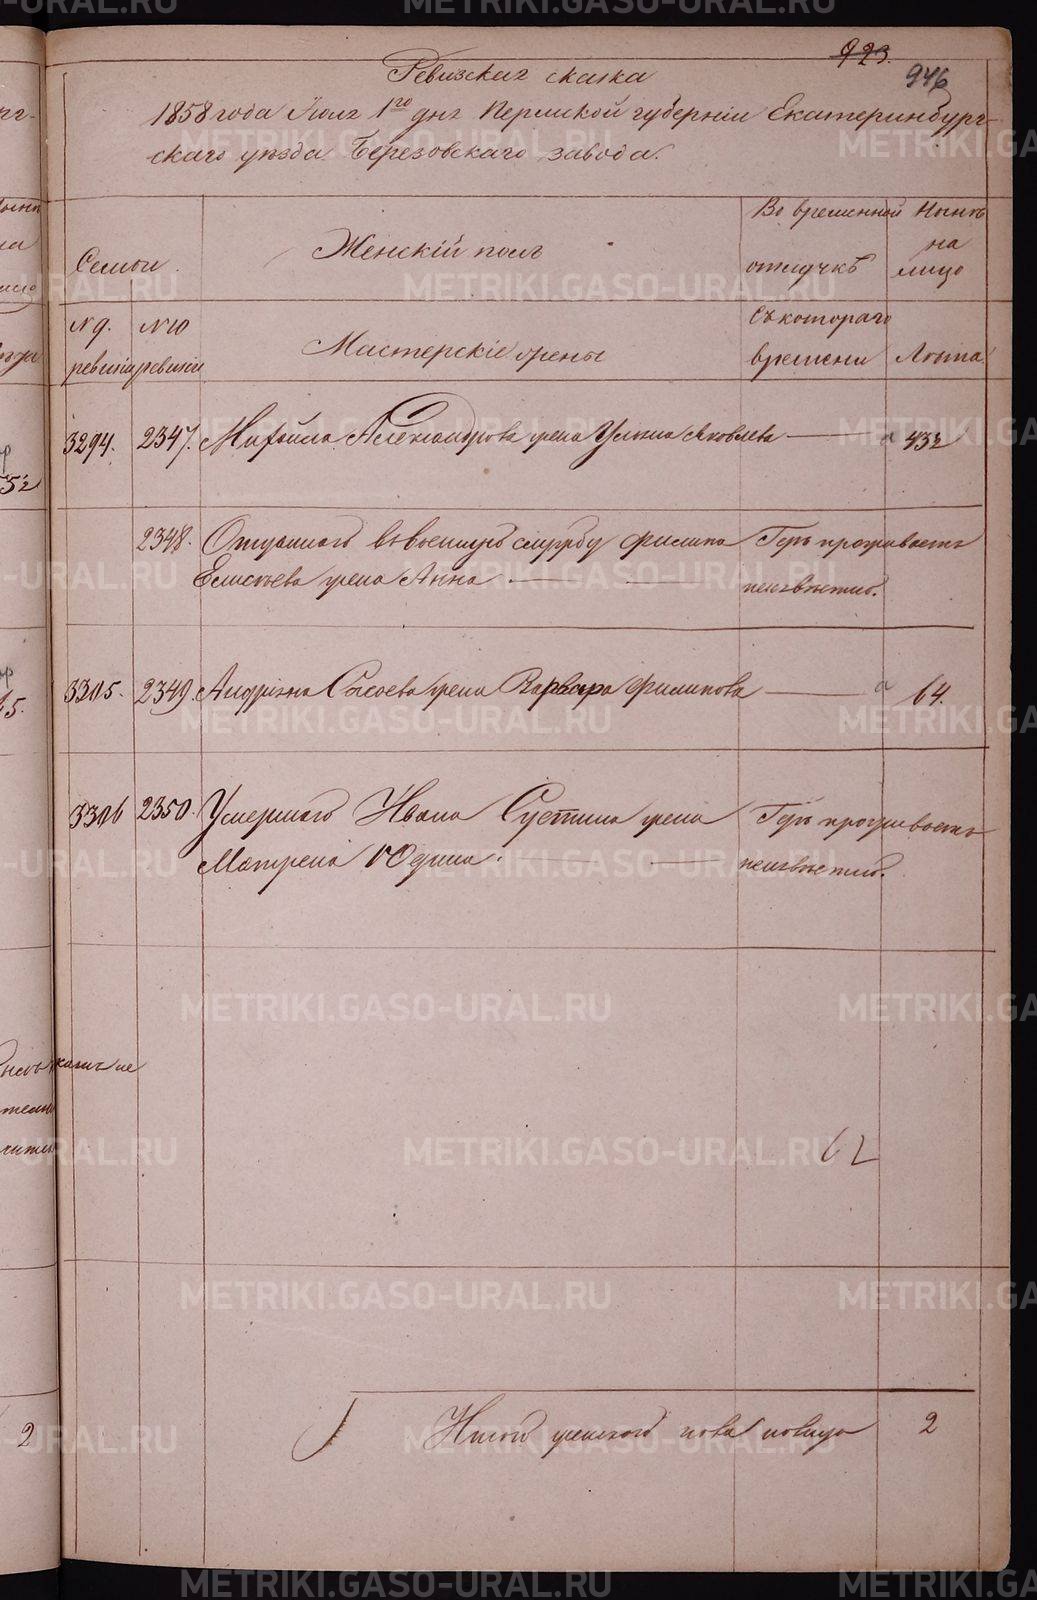 923.
946
Ревизская сказка
1858 года Июля 1го дня Пермской губерніи Екатеринбург-
скаго уѣзда Березовскаго завода.
Семьи
Женскій полъ
Во временной
отлучкѣ
Нынѣ
на
лицо
№ 9.
ревизіи
№ 10
ревизіи
Мастерскіе жены
Съ котораго
времени
Лѣта.
3294. 2347. Михайла Александрова жена Ульяна Яковлева 43½
2348. Отданнаго въ военную службу Филипа Гдѣ проживаетъ
Елисѣева жена Анна неизвѣстно.
3305. 2349. Андріяна Сысоева жена Варвара Филипова 64.
3306 2350. Умершаго Ивана жена Гдѣ проживаетъ
Матрена Юдина. неизвѣстно.
62
2
Итого женского пола на лицо 2
METRIKI.GASO-URAL.RU